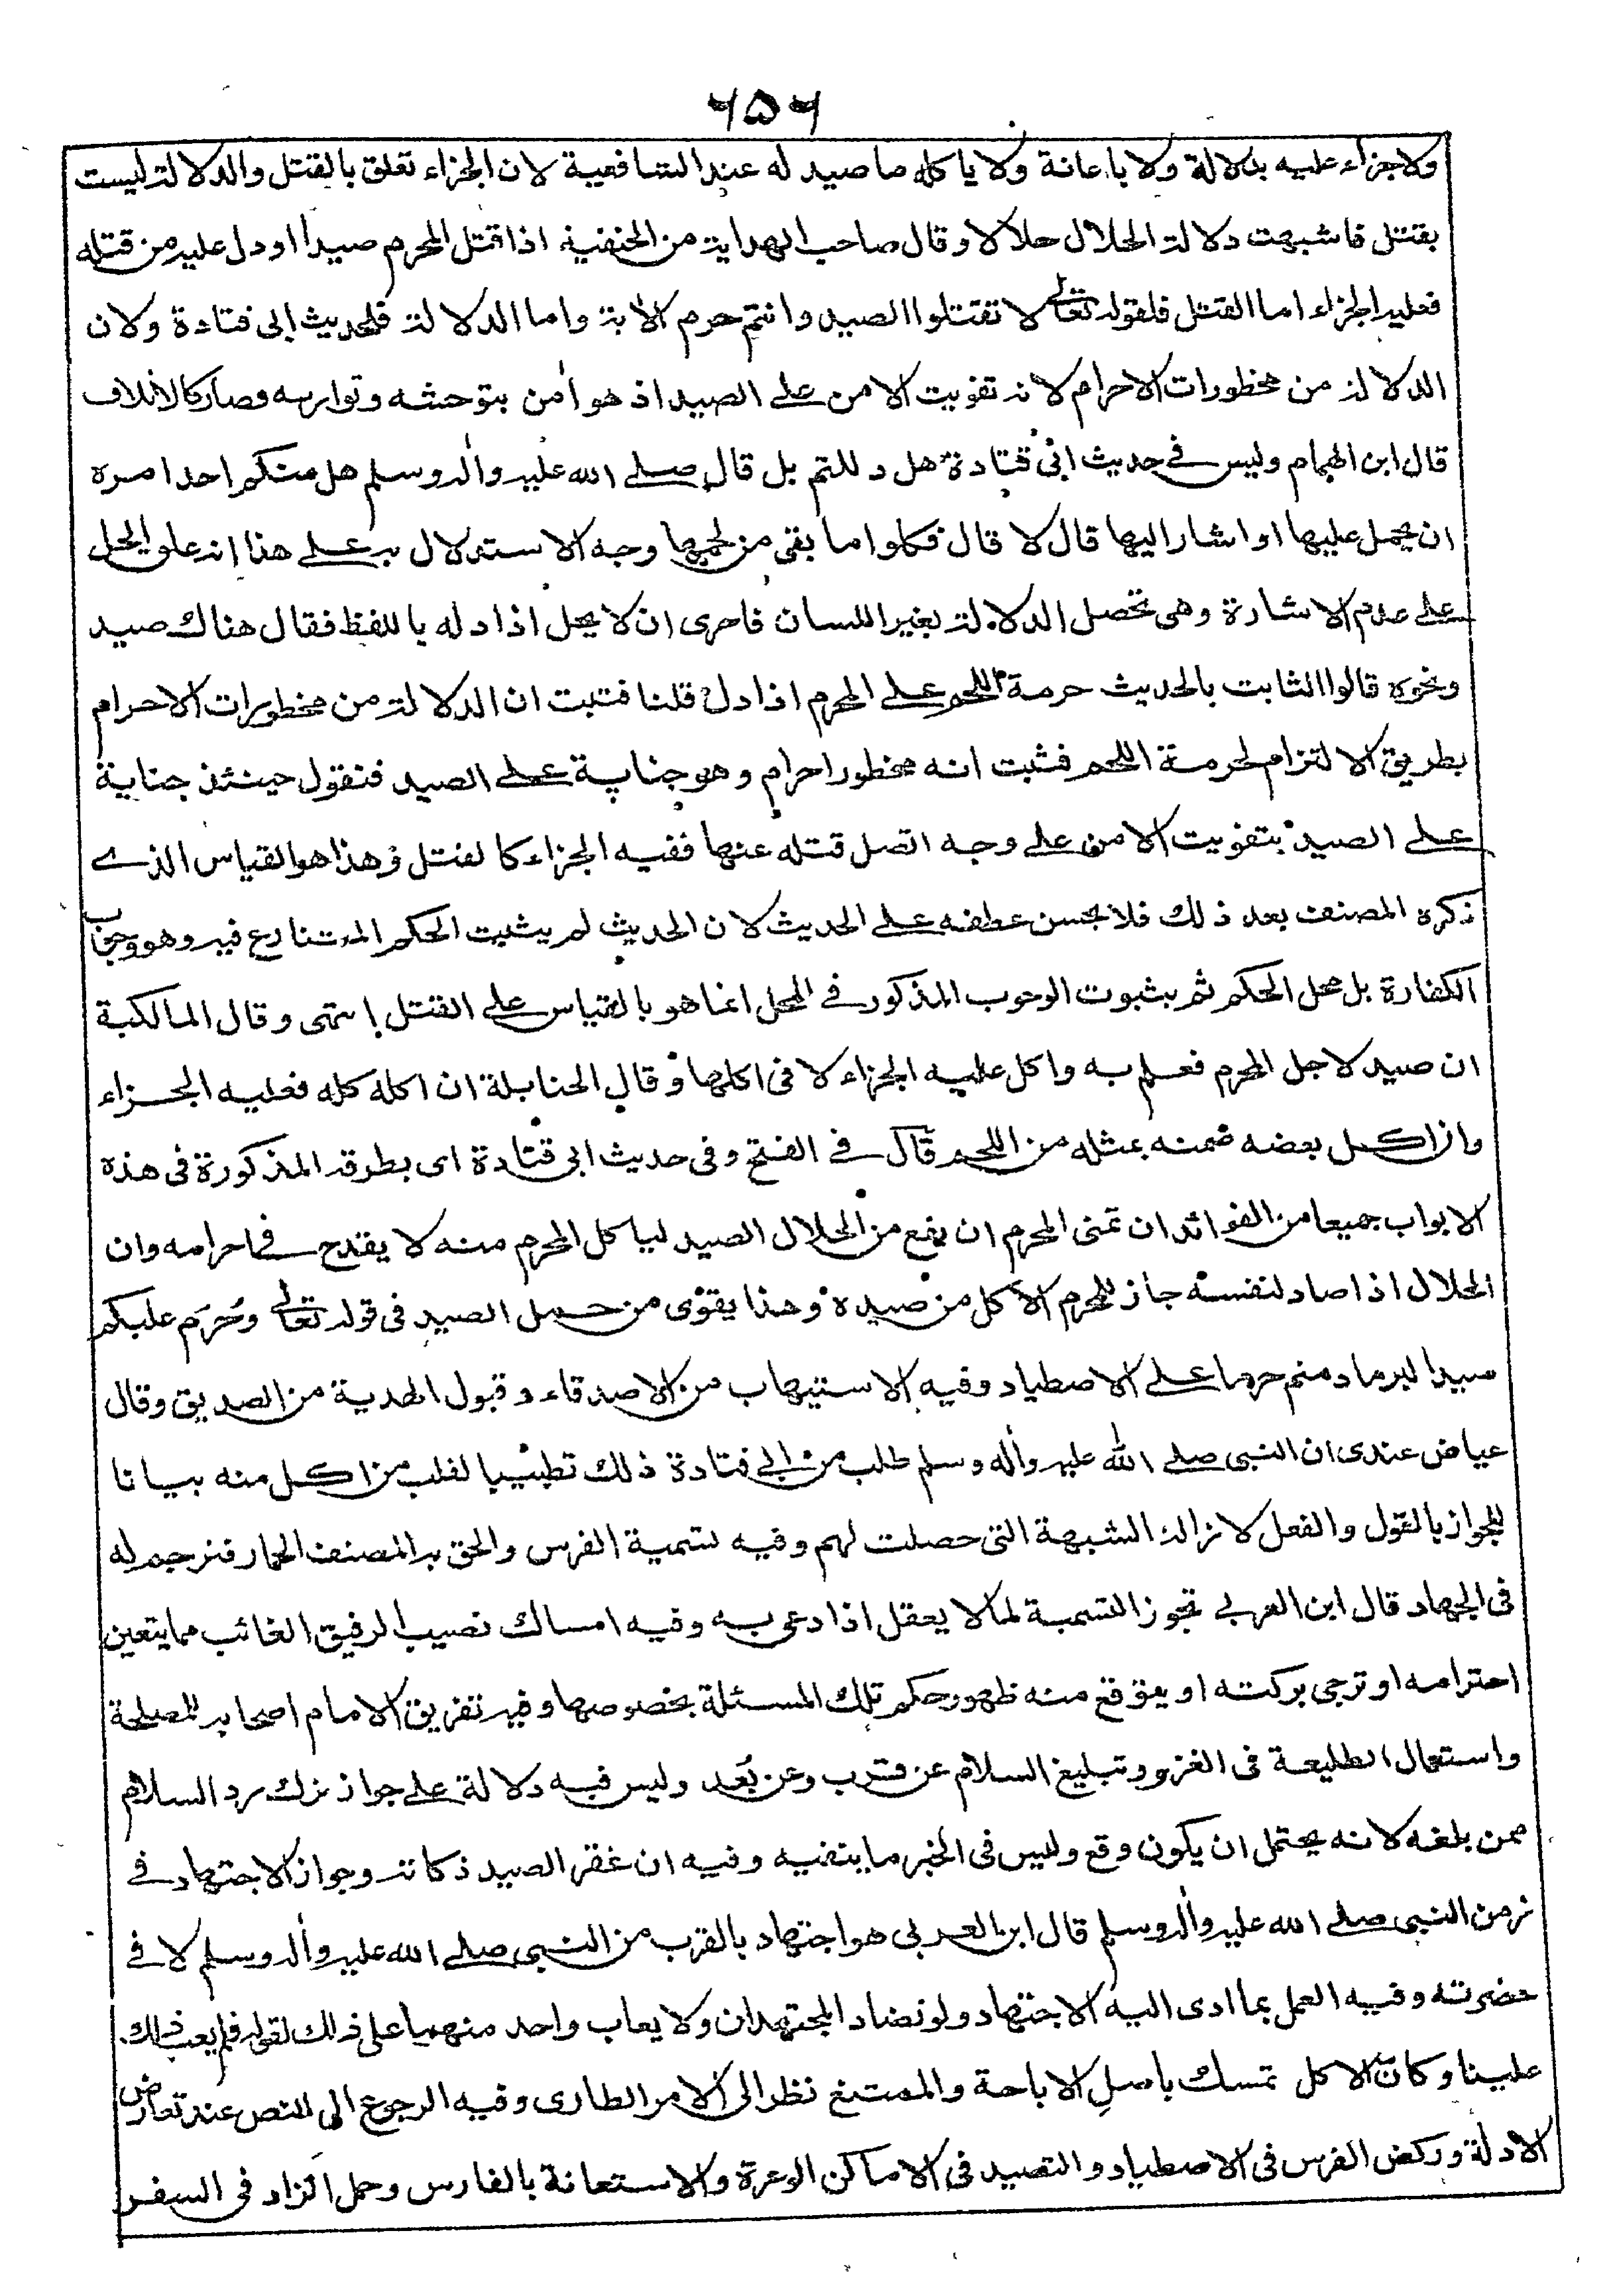 ٦٥٦
ولا جزاء عليه بدلالة ولا باعانة ولا ياكله ما صيد له عند الشافعية لان الجزاء تعلق بالقتل والدلالة ليست
بقتل فاشبهت دلالة الحلال حلالا وقال صاحب الهداية من الحنفية اذا قتل المحرم صيدا او دل عليه من قتله
فعليه الجزاء اما القتل فلقوله تعالى لا تقتلوا الصيد وانتم حرم الآية واما الدلالة فلحديث ابى قتادة ولان
الدلالة من محظورات الاحرام لانه تفويت الامن على الصيد اذ هو أمن بتوحشه وتواريه وصار كالاتلاف
قال ابن الهمام وليس فى حديث ابى قتادة هل دللتم بل قال صلى الله عليه وآله وسلم هل منكم احد امره
ان يحمل عليها او اشار اليها قال لا قال فكلوا ما بقى من لحمها وجه الاستدلال به على هذا انه علق الحل
على عدم الاشارة وهى تحصل الدلالة بغير اللسان فاحرى ان لا يحل اذا دله باللفظ فقال هناك صيد
ونحوه قالوا الثابت بالحديث حرمة اللحم على المحرم اذا دل قلنا فثبت ان الدلالة من محظورات الاحرام
بطريق الالتزام لحرمة اللحم فثبت انه محظور احرام وهو جناية على الصيد فنقول حينئذ جناية
على الصيد بتفويت الامن على وجه اتصل قتله عنها ففيه الجزاء كالقتل وهذا هو القياس الذى
ذكره المصنف بعد ذلك فلا يحسن عطفه على الحديث لان الحديث لم يثبت الحكم المتنازع فيه وهو وجوب
الكفارة بل محل الحكم ثم بثبوت الوجوب المذكور فى المحل انما هو بالقياس على القتل انتهى وقال المالكية
ان صيد لاجل المحرم فعلم به واكل عليه الجزاء لا فى اكلها وقال الحنابلة ان اكله كله فعليه الجزاء
وان اكل بعضه ضمنه بمثله من اللحم قال فى الفتح وفى حديث ابى قتادة اى بطرقه المذكورة فى هذه
الابواب جميعا من الفوائد ان تمنى المحرم ان يقع من الحلال الصيد ليأكل المحرم منه لا يقدح فى احرامه وان
الحلال اذا صاد لنفسه جاز للمحرم الاكل من صيده وهذا يقوى من حمل الصيد فى قوله تعالى وحُرّم عليكم
صيد البر ما دمتم حرما على الاصطياد وفيه الاستيهاب من الاصدقاء وقبول الهدية من الصديق وقال
عياض عندى ان النبى صلى الله عليه وآله وسلم طلب من ابى قتادة ذلك تطييبا لقلب من اكل منه بيانا
للجواز بالقول والفعل لازالة الشبهة التى حصلت لهم وفيه تسمية الفرس والحق به المصنف الحمار فترجم له
فى الجهاد قال ابن العربى تجوز التسمية لما لا يعقل اذا دعى به وفيه امساك نصيب الرفيق الغائب مما يتعين
احترامه او ترجى بركته او يتوقع منه ظهور حكم تلك المسئلة بخصوصها وفيه تفريق الامام اصحابه للمصلحة
واستعمال الطليعة فى الغزو وتبليغ السلام عن قرب وعن بُعد وليس فيه دلالة على جواز ترك رد السلام
ممن بلغه لانه يحتمل ان يكون وقع وليس فى الخبر ما ينفيه وفيه ان عقر الصيد ذكاته وجواز الاجتهاد فى
زمن النبى صلى الله عليه وآله وسلم قال ابن العربى هو اجتهاد بالقرب من النبى صلى الله عليه وآله وسلم لا فى
حضرته وفيه العمل بما ادى اليه الاجتهاد ولو تضاد المجتهدان ولا يعاب واحد منهما على ذلك لقوله فلم يعب ذلك
علينا وكان الاكل تمسك بأصلِ الاباحة والممتنع نظر الى الامر الطارى وفيه الرجوع الى النص عند تعارض
الادلة وركض الفرس فى الاصطياد والتصيد فى الاماكن الوعرة والاستعانة بالفارس وحمل الزاد فى السفر